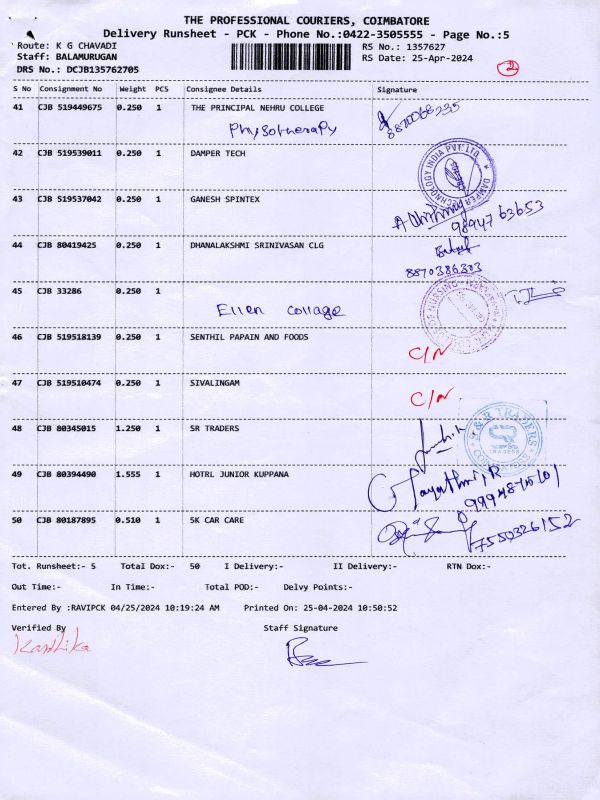 THE PROFESSIONAL COURIERS, COIMBATORE
Delivery Runsheet - PCK - Phone No.:0422-3505555 - Page No.:5
Route: K G CHAVADI RS No.: 1357627
Staff: BALAMURUGAN RS Date: 25-Apr-2024
DRS No.: DCJB135762705 2
S No Consignment No Weight PCS Consignee Details Signature
41 CJB 519449675 0.250 1 THE PRINCIPAL NEHRU COLLEGE
Physotherapy 8870068335
42 CJB 519539011 0.250 1 DAMPER TECH
DAMPER TECHNOLOGY INDIA PVT. LTD.
43 CJB 519537042 0.250 1 GANESH SPINTEX
98947 63653
44 CJB 80419425 0.250 1 DHANALAKSHMI SRINIVASAN CLG
8870386303
45 CJB 33286 0.250 1
Ellen collage
46 CJB 519518139 0.250 1 SENTHIL PAPAIN AND FOODS
C/N
47 CJB 519510474 0.250 1 SIVALINGAM
C/N
48 CJB 80345015 1.250 1 SR TRADERS
S & R TRADERS
SR
TRADERS
49 CJB 80394490 1.555 1 HOTRL JUNIOR KUPPANA
Gayathri, R
50 CJB 80187895 0.510 1 5K CAR CARE
7550326152
Tot. Runsheet:- 5 Total Dox:- 50 I Delivery:- II Delivery:- RTN Dox:-
Out Time:- In Time:- Total POD:- Delvy Points:-
Entered By :RAVIPCK 04/25/2024 10:19:24 AM Printed On: 25-04-2024 10:50:52
Verified By Staff Signature
Karthika